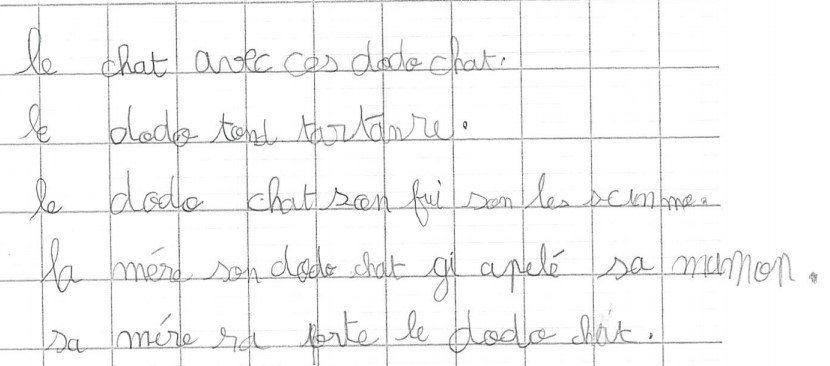 le chat avec ces dodo chat.
le dodo tond tartanre.
le dodo chat san fui son les scimme.
la mére son dodo chat gi apelé sa mamon.
sa mére ra porte le dodo chat.